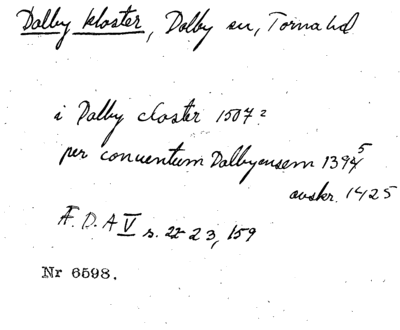 Dalby kloster, Dalby sn, Torna hd
i Dalby closter 1507 2
per conuentum Dalbyensem 1394 5
avskr. 1425
Æ.D.A V s. 22 23, 159
Nr 6598.